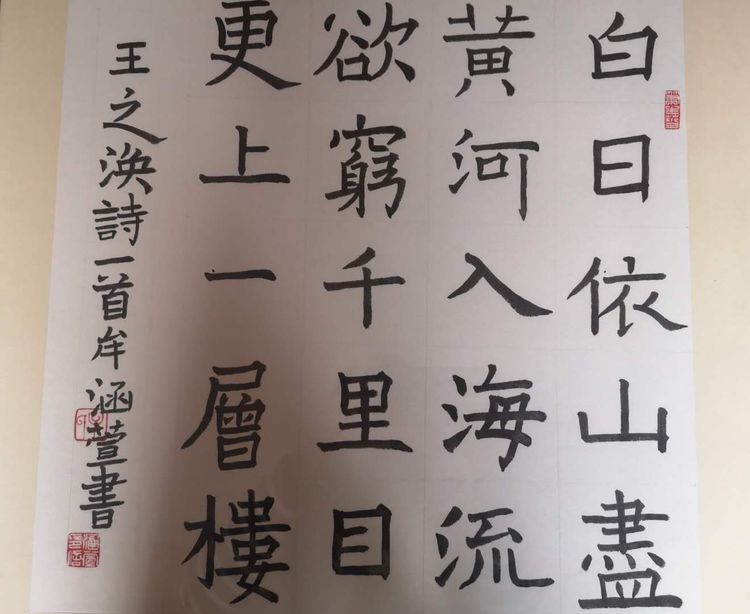 白日依山盡
黃河入海流
欲窮千里目
更上一層樓
王之渙詩一首牟涵萱書